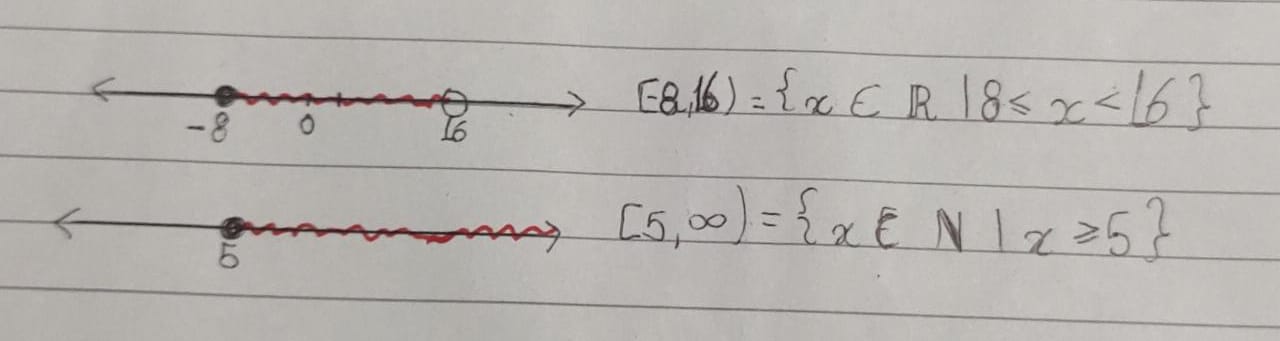 -8 0 16 [-8,16) = {x ∈ ℝ | 8 ≤ x < 16}
5 [5,∞) = {x ∈ N | x ≥ 5}